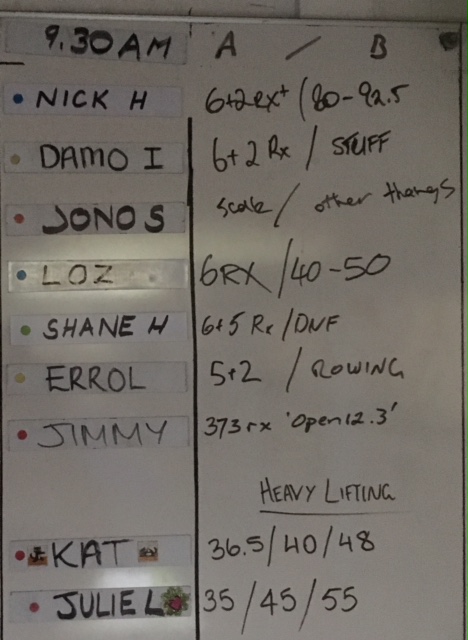 9.30AM A / B
NICK H 6+2rx+ / 80-92.5
DAMO I 6+2 Rx / STUFF
JONO S scale / other thangs
LOZ 6RX / 40-50
SHANE H 6+5 Rx / DNF
ERROL 5+2 / ROWING
JIMMY 373rx 'Open12.3'
HEAVY LIFTING
KAT 36.5 / 40 / 48
JULIE L 35 / 45 / 55